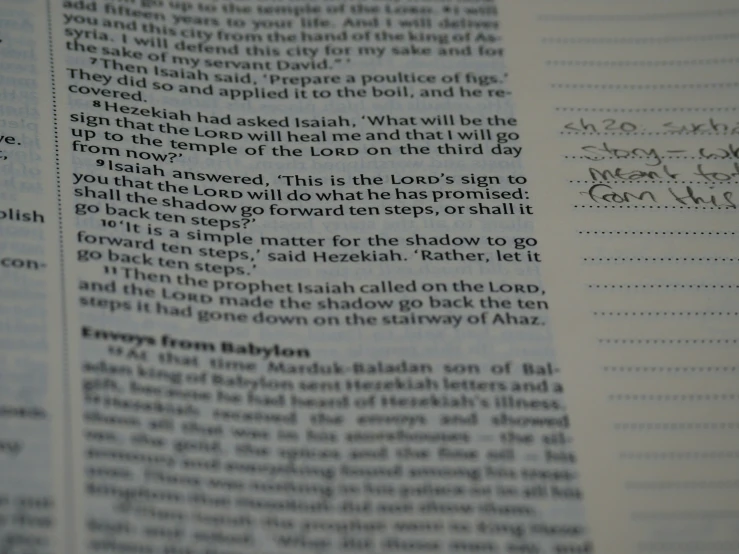 go up to the temple of the LORD. ⁶I will
add fifteen years to your life. And I will deliver
you and this city from the hand of the king of As-
syria. I will defend this city for my sake and for
the sake of my servant David.” ’
⁷Then Isaiah said, ‘Prepare a poultice of figs.’
They did so and applied it to the boil, and he re-
covered.
⁸Hezekiah had asked Isaiah, ‘What will be the
sign that the LORD will heal me and that I will go
up to the temple of the LORD on the third day
from now?’
⁹Isaiah answered, ‘This is the LORD’s sign to
you that the LORD will do what he has promised:
shall the shadow go forward ten steps, or shall it
go back ten steps?’
¹⁰‘It is a simple matter for the shadow to go
forward ten steps,’ said Hezekiah. ‘Rather, let it
go back ten steps.’
¹¹Then the prophet Isaiah called on the LORD,
and the LORD made the shadow go back the ten
steps it had gone down on the stairway of Ahaz.
Envoys from Babylon
¹²At that time Marduk-Baladan son of Bal-
adan king of Babylon sent Hezekiah letters and a
gift, because he had heard of Hezekiah’s illness.
¹³Hezekiah received the envoys and showed
them all that was in his storehouses – the sil-
ver, the gold, the spices and the fine oil – his
armoury and everything found among his treas-
ures. There was nothing in his palace or in all his
kingdom that Hezekiah did not show them.
ve.
plish
con-
ch 20
story –
meant
from this